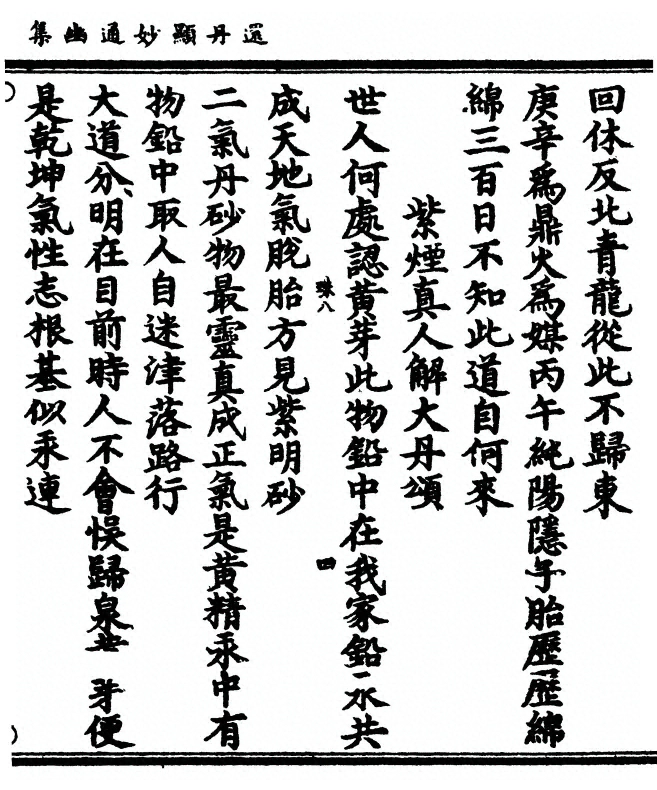 還丹顯妙通幽集
回休反北青龍從此不歸東
庚辛爲鼎火爲媒丙午純陽隱午胎歷歷綿
綿三百日不知此道自何來
紫煙真人解大丹頌
世人何處認黃芽此物鉛中在我家鉛一水共
珠八
四
成天地氣脫胎方見紫明砂
二氣丹砂物最靈真成正氣是黃精汞中有
物鉛中取人自迷津落路行
大道分明在目前時人不會悞歸泉芽便
是乾坤氣性志根基似汞連